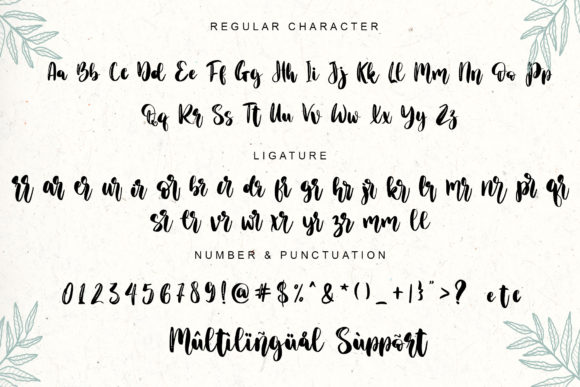 REGULAR CHARACTER
Aa Bb Cc Dd Ee Ff Gg Hh Ii Jj Kk Ll Mm Nn Oo Pp
Qq Rr Ss Tt Uu Vv Ww Xx Yy Zz
LIGATURE
rr ar er ur ir or br cr dr fr gr hr jr kr lr mr nr pr qr
sr tr vr wr xr yr zr mm ll
NUMBER & PUNCTUATION
0123456789!@#$%^&*()_+|}">? etc
Mûltilïñgüál Sùppõrt